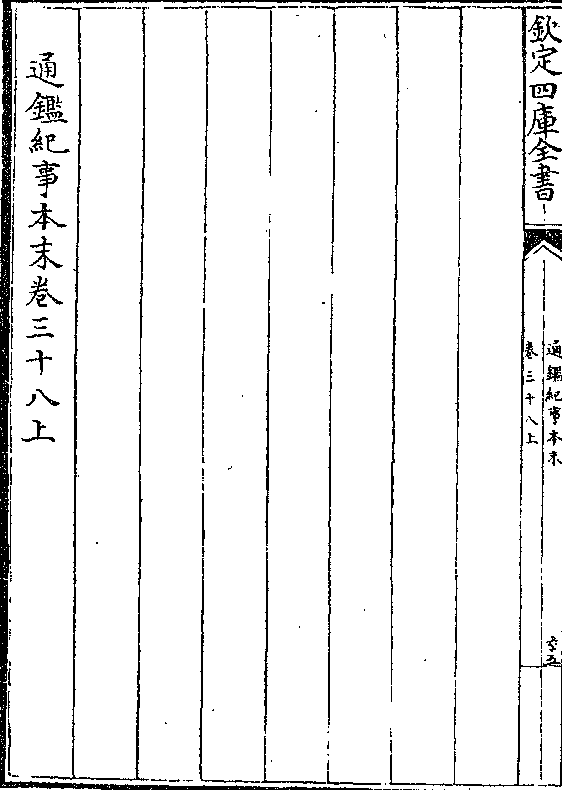 欽定四庫全書
通鑑紀事本末
卷三十八上
通鑑紀事本末卷三十八上